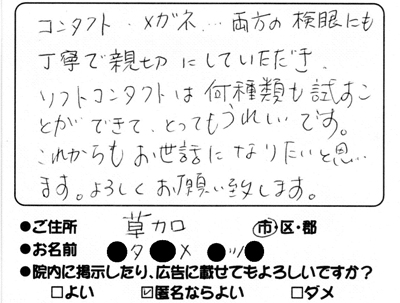 コンタクト・メガネ…両方の検眼にも
丁寧で親切にしていただき、
ソフトコンタクトは何種類も試すこ
とができて、とってもうれしいです。
これからもお世話になりたいと思い
ます。よろしくお願い致します。
●ご住所 草加 市・区・郡
●お名前 ●タ●メ ●ッ●
●院内に掲示したり、広告に載せてもよろしいですか？
□よい ☑匿名ならよい □ダメ